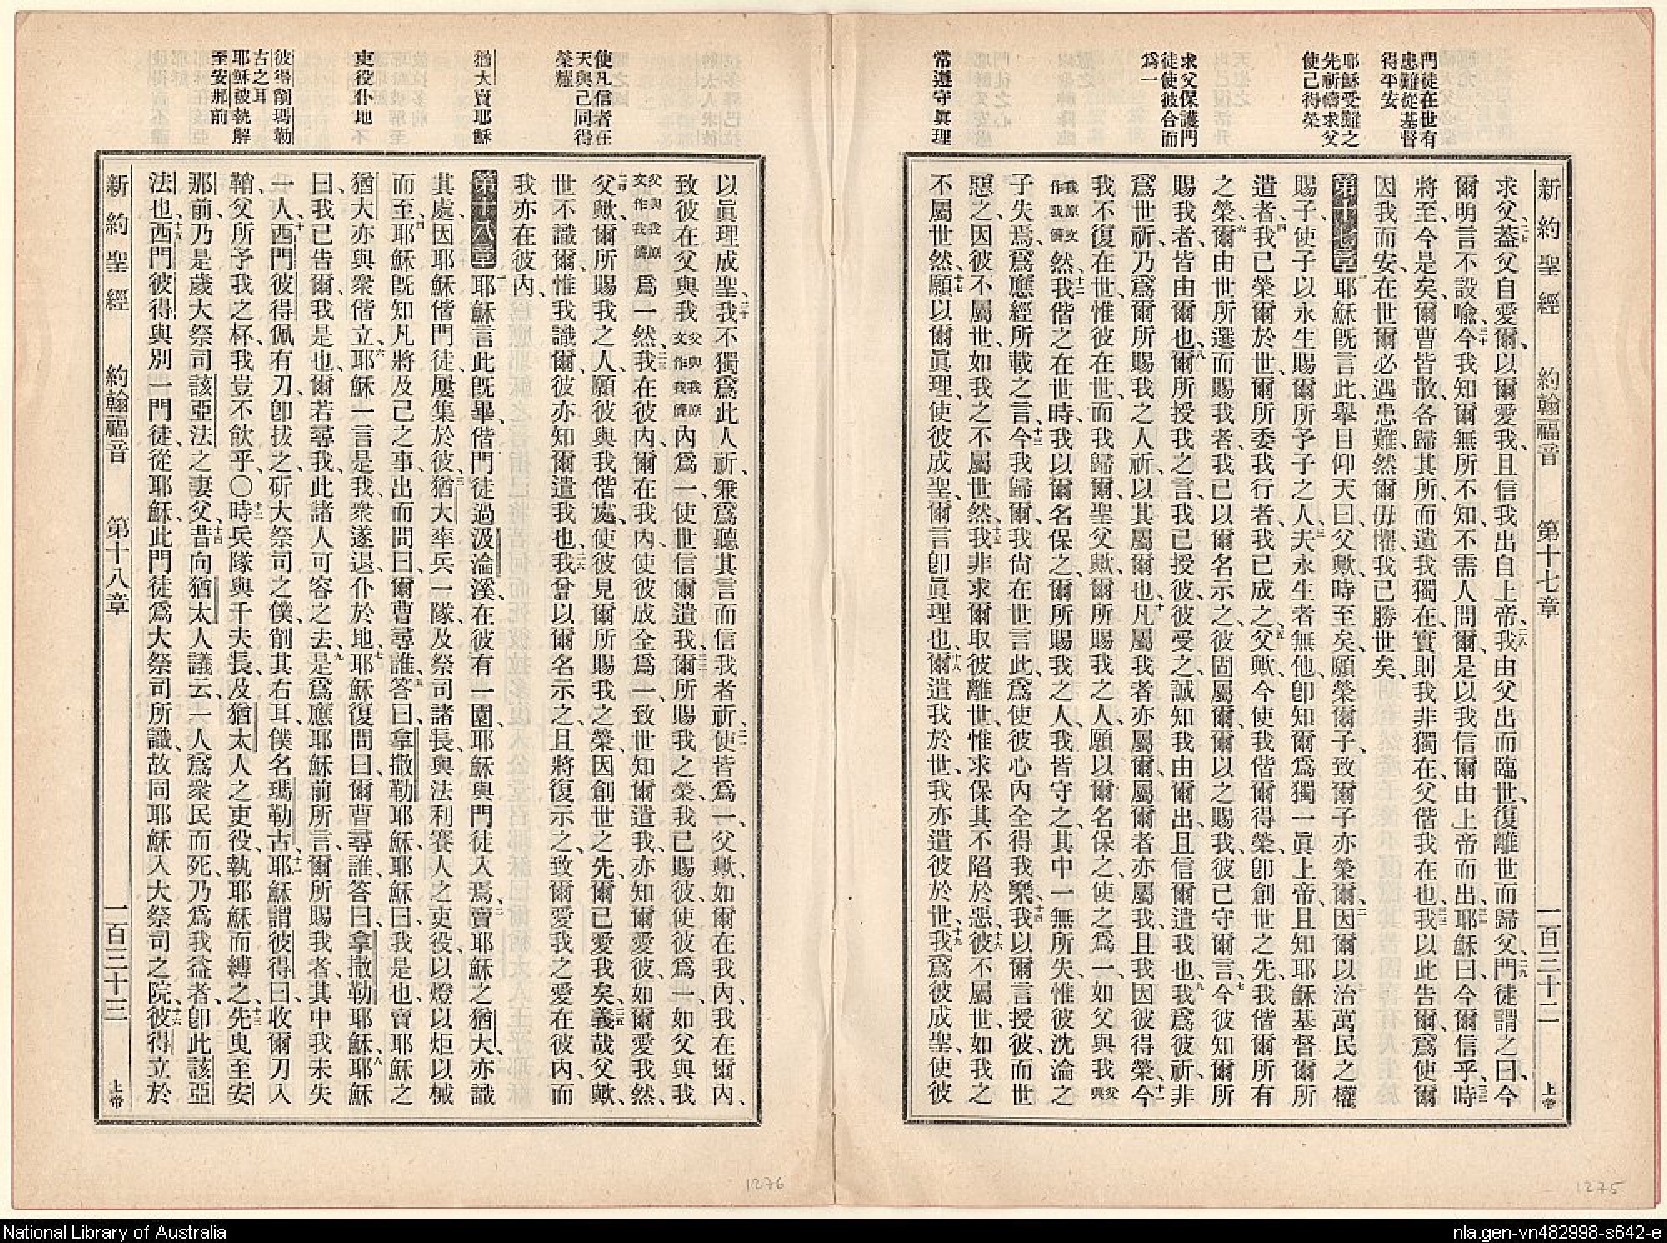 門徒在世有
患難從基督
得平安
耶穌受難之
先祈禱求父
使己得榮
求父保護門
徒使彼合而
爲一
常遵守眞理
新約聖經 約翰福音 第十七章 一百三十二 上帝
求父、二七蓋父自愛爾、以爾愛我、且信我出自上帝、二八我由父出而臨世、復離世而歸父、二九門徒謂之曰、今
爾明言不設喩、三十今我知爾無所不知、不需人問爾、是以我信爾由上帝而出、三一耶穌曰、今爾信乎、三二時
將至、今是矣、爾曹皆散、各歸其所、而遺我獨在、實則我非獨在、父偕我在也、三三我以此告爾、爲使爾
因我而安、在世爾必遇患難、然爾毋懼、我已勝世矣、
第十七章 一耶穌旣言此、舉目仰天曰、父歟、時至矣、願榮爾子、致爾子亦榮爾、二因爾以治萬民之權
賜子、使子以永生賜爾所予子之人、三夫永生者無他、卽知爾爲獨一眞上帝、且知耶穌基督爾所
遣者、四我已榮爾於世、爾所委我行者、我已成之、五父歟、今使我偕爾得榮、卽創世之先、我偕爾所有
之榮、六爾由世所選而賜我者、我已以爾名示之、彼固屬爾、爾以之賜我、彼已守爾言、七今彼知爾所
賜我者、皆由爾也、八爾所授我之言、我已授彼、彼受之、誠知我由爾出、且信爾遣我也、九我爲彼祈、非
爲世祈、乃爲爾所賜我之人祈、以其屬爾也、十凡屬我者亦屬爾、屬爾者亦屬我、且我因彼得榮、十一今
我不復在世、惟彼在世、而我歸爾、聖父歟、爾所賜我之人、願以爾名保之、使之爲一、如父與我 父與
我原文作我儕 然、十二我偕之在世時、我以爾名保之、爾所賜我之人、我皆守之、其中一無所失、惟彼沈淪之
子失焉、爲應經所載之言、十三今我歸爾、我尙在世言此、爲使彼心內全得我樂、十四我以爾言授彼、而世
惡之、因彼不屬世、如我之不屬世然、十五我非求爾取彼離世、惟求保其不陷於惡、十六彼不屬世、如我之
不屬世然、十七願以爾眞理、使彼成聖、爾言卽眞理也、十八爾遣我於世、我亦遣彼於世、十九我爲彼成聖、使彼
使凡信者在
天與己同得
榮耀
猶大賣耶穌
吏役仆地
彼得削瑪勒
古之耳
耶穌被執解
至安那前
以眞理成聖、二十我不獨爲此人祈、兼爲聽其言而信我者祈、二一使皆爲一、父歟、如爾在我內、我在爾內、
致彼在父與我 父與我原文作我儕 爲一然、
父與我原文作我儕 內爲一、使世信爾遣我、二二爾所賜我之榮、我已賜彼、使彼爲一、如父與我
二三我在彼內、爾在我內、使彼成全爲一、致世知爾遣我、亦知爾愛彼、如爾愛我然、
二四父歟、爾所賜我之人、願彼與我偕處、使彼見爾所賜我之榮、因創世之先、爾已愛我矣、二五義哉父歟、
世不識爾、惟我識爾、彼亦知爾遣我也、二六我曾以爾名示之、且將復示之、致爾愛我之愛在彼內、而
我亦在彼內、
第十八章 一耶穌言此旣畢、偕門徒過汲淪溪、在彼有一園、耶穌與門徒入焉、二賣耶穌之猶大亦識
其處、因耶穌偕門徒屢集於彼、三猶大率兵一隊、及祭司諸長與法利賽人之吏役、以燈以炬以械
而至、四耶穌旣知凡將及己之事、出而問曰、爾曹尋誰、五答曰、拿撒勒耶穌、耶穌曰、我是也、賣耶穌之
猶大亦與衆偕立、六耶穌一言是我、衆遂退仆於地、七耶穌復問曰、爾曹尋誰、答曰、拿撒勒耶穌、八耶穌
曰、我已告爾我是也、爾若尋我、此諸人可容之去、九是爲應耶穌前所言、爾所賜我者、其中我未失
一人、十西門彼得佩有刀、卽拔之、斫大祭司之僕、削其右耳、僕名瑪勒古、十一耶穌謂彼得曰、收爾刀入
鞘、父所予我之杯、我豈不飮乎、〇十二時兵隊與千夫長、及猶太人之吏役、執耶穌而縛之、十三先曳至安
那前、乃是歲大祭司該亞法之妻父、十四昔向猶太人議云、一人爲衆民而死、乃爲我益者、卽此該亞
法也、十五西門彼得與別一門徒、從耶穌、此門徒爲大祭司所識、故同耶穌入大祭司之院、十六彼得立於
新約聖經 約翰福音 第十八章 一百三十三 上帝
1276
1275
National Library of Australia
nla.gen-vn482998-s642-e